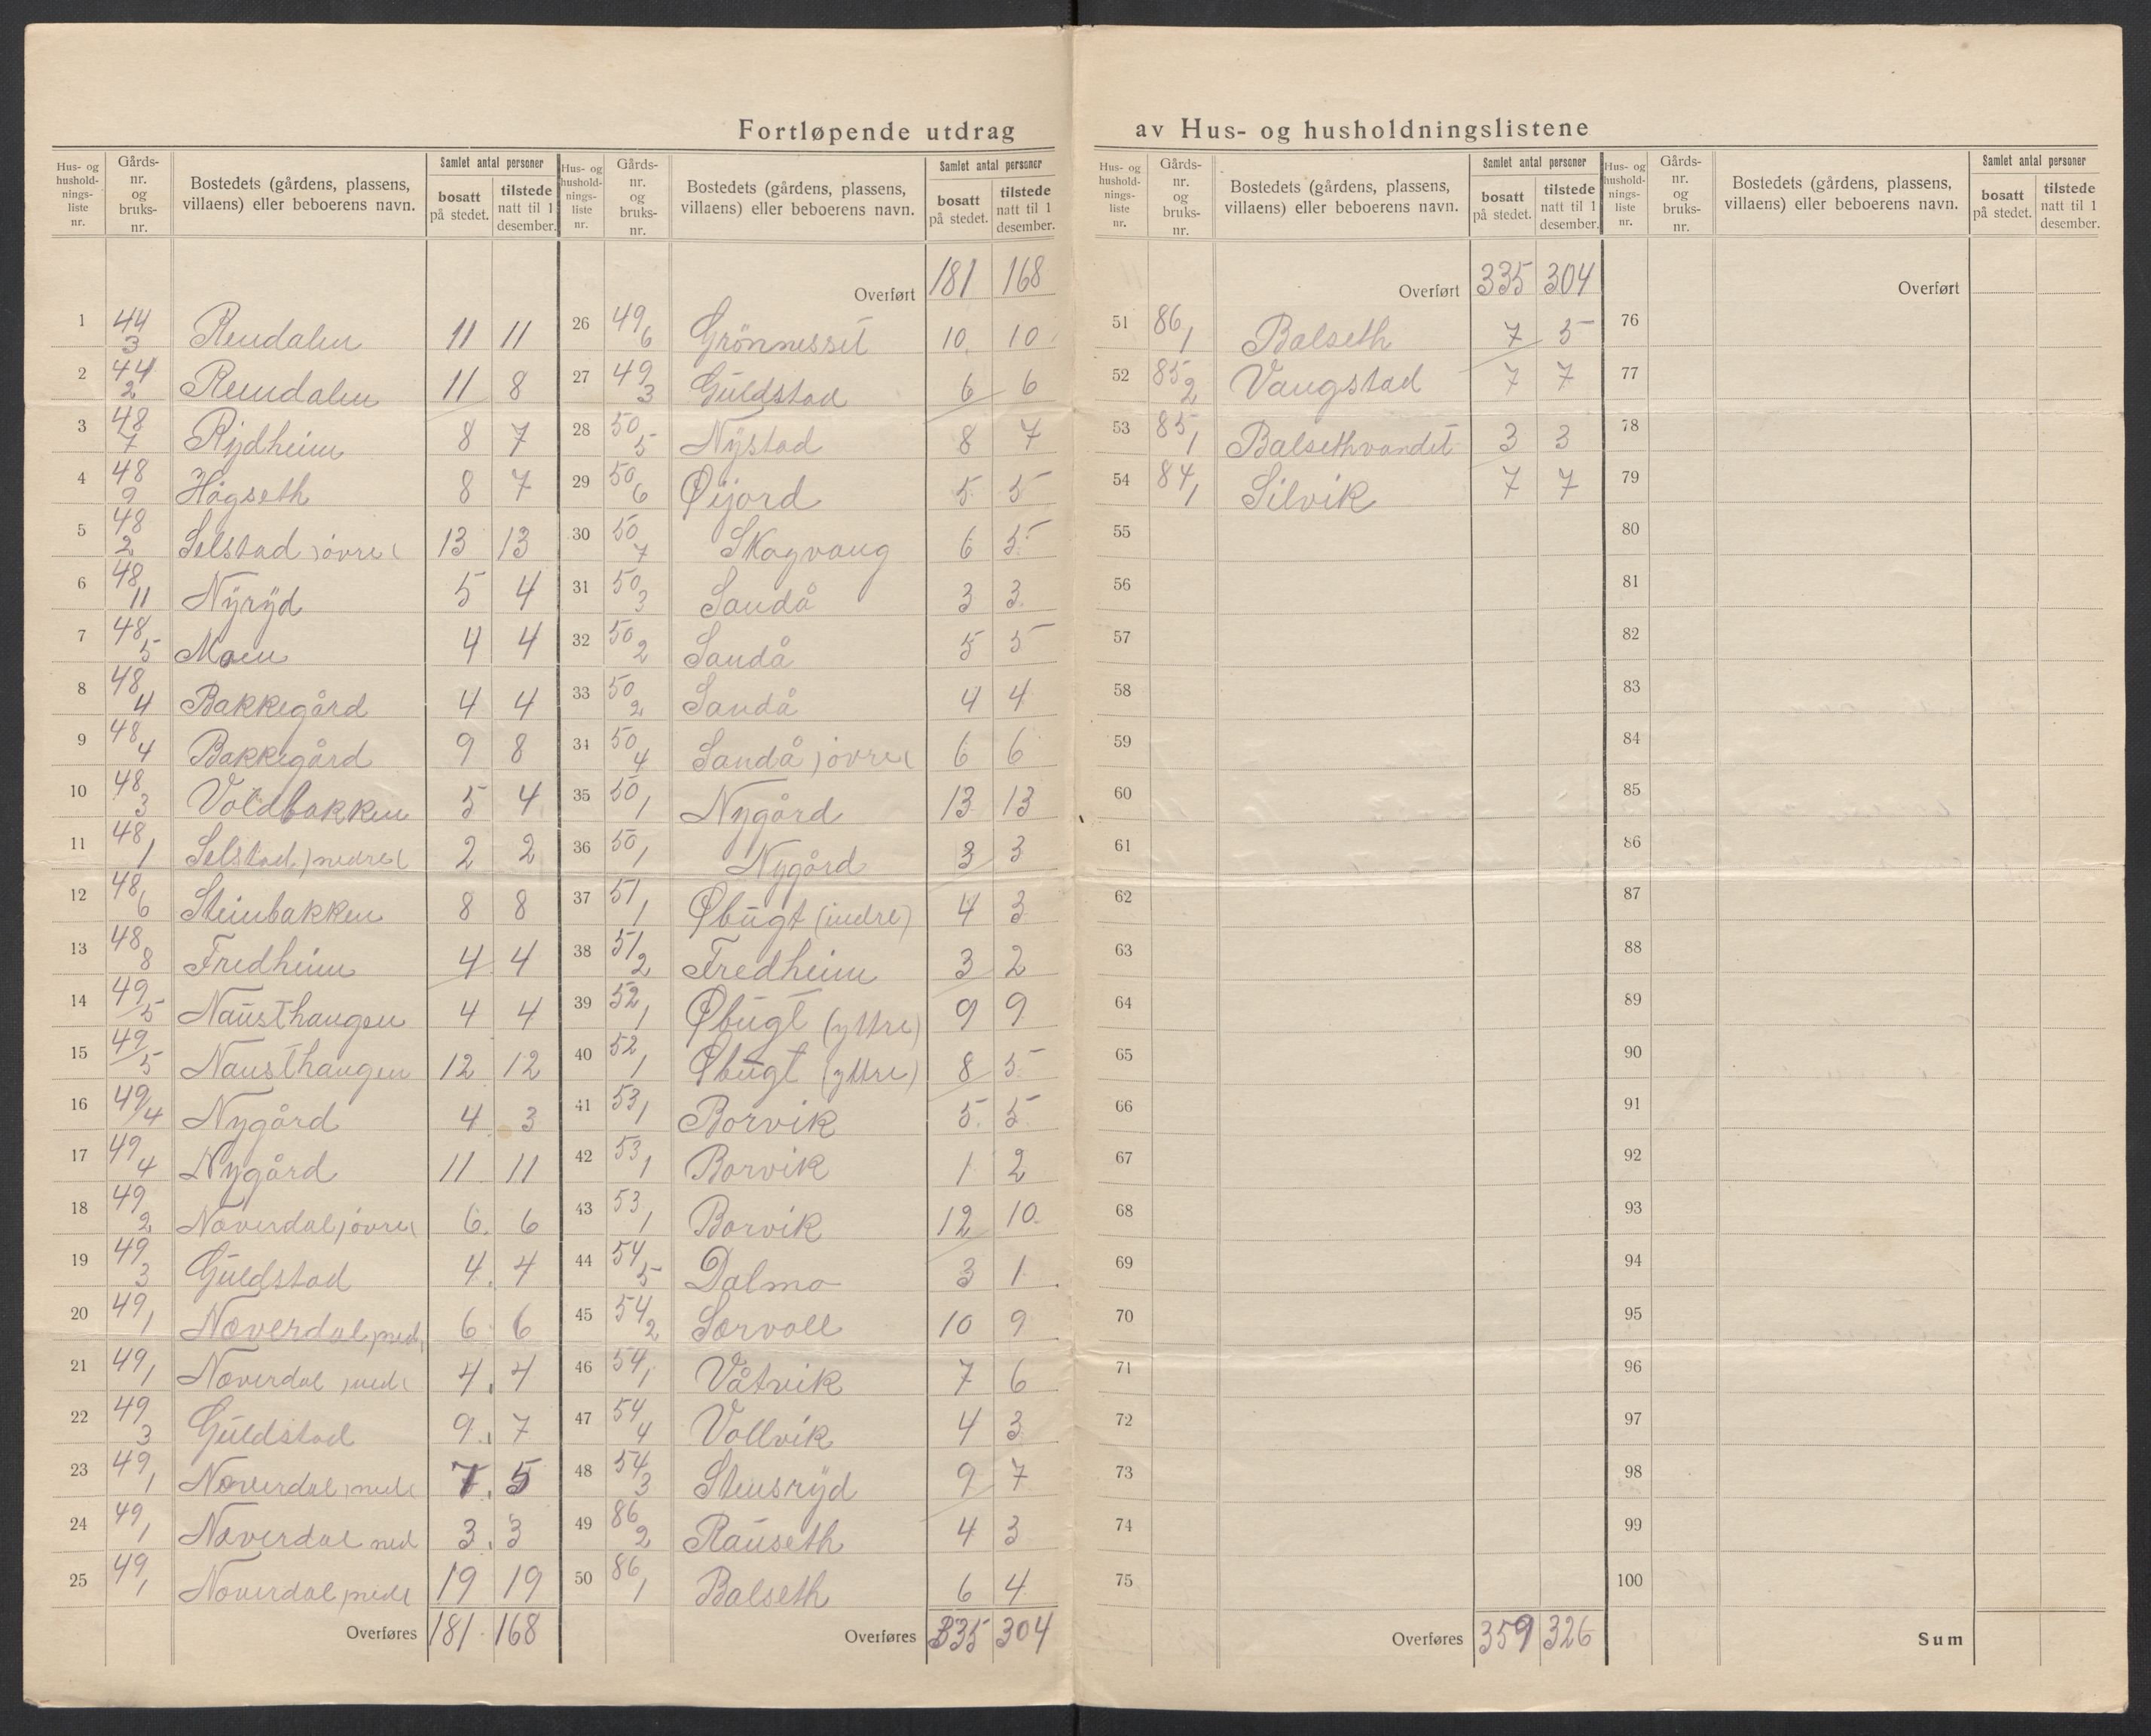 Fortløpende utdrag av Hus- og husholdningslistene
Hus- og husholdnings-liste nr. | Gårds-nr. og bruks-nr. | Bostedets (gårdens, plassens, villaens) eller beboerens navn. | Samlet antal personer | bosatt på stedet. | tilstede natt til 1 desember.
1 44/3 Rendalen 11 11
2 44/2 Rendalen 11 8
3 48/7 Rydheim 8 7
4 48/9 Högseth 8 7
5 48/2 Selstad (övre) 13 13
6 48/11 Nÿrÿd 5 4
7 48/5 Moen 4 4
8 48/4 Bakkegård 4 4
9 48/4 Bakkegård 9 8
10 48/3 Voldbakken 5 4
11 48/1 Selstad (nedre) 2 2
12 48/6 Steinbakken 8 8
13 48/8 Fredheim 4 4
14 49/5 Nausthaugen 4 4
15 49/5 Nausthaugen 12 12
16 49/4 Nygård 4 3
17 49/4 Nygård 11 11
18 49/2 Næverdal (övre) 6 6
19 49/3 Guldstad 4 4
20 49/1 Næverdal (ned) 6 6
21 49/1 Næverdal (ned) 4 4
22 49/3 Guldstad 9 7
23 49/1 Næverdal (ned) 7 5
24 49/1 Næverdal ned 3 3
25 49/1 Næverdal (ned) 19 19
Overføres 181 168
Hus- og husholdnings-liste nr. | Gårds-nr. og bruks-nr. | Bostedets (gårdens, plassens, villaens) eller beboerens navn. | Samlet antal personer | bosatt på stedet. | tilstede natt til 1 desember.
Overført 181 168
26 49/6 Grönnesset 10 10
27 49/3 Guldstad 6 6
28 50/5 Nÿstad 8 7
29 50/6 Øijord 5 5
30 50/7 Skogvang 6 5
31 50/3 Sandå 3 3
32 50/2 Sandå 5 5
33 50/2 Sandå 4 4
34 50/4 Sandå (övre) 6 6
35 50/1 Nygård 13 13
36 50/1 Nygård 3 3
37 51/1 Øbugt (indre) 4 3
38 51/2 Fredheim 3 2
39 52/1 Øbugt (yttre) 9 9
40 52/1 Øbugt (yttre) 8 5
41 53/1 Borvik 5 5
42 53/1 Borvik 1 2
43 53/1 Borvik 12 10
44 54/5 Dalmo 3 1
45 54/2 Sørvoll 10 9
46 54/1 Våtvik 7 6
47 54/4 Vollvik 4 3
48 54/3 Stensrÿd 9 7
49 86/2 Rauseth 4 3
50 86/1 Balseth 6 4
Overføres 335 304
Hus- og husholdnings-liste nr. | Gårds-nr. og bruks-nr. | Bostedets (gårdens, plassens, villaens) eller beboerens navn. | Samlet antal personer | bosatt på stedet. | tilstede natt til 1 desember.
Overført 335 304
51 86/1 Balseth 7 5
52 85/2 Vangstad 7 7
53 85/1 Balsethvandet 3 3
54 84/1 Silvik 7 7
55
56
57
58
59
60
61
62
63
64
65
66
67
68
69
70
71
72
73
74
75
Overføres 359 326
Hus- og husholdnings-liste nr. | Gårds-nr. og bruks-nr. | Bostedets (gårdens, plassens, villaens) eller beboerens navn. | Samlet antal personer | bosatt på stedet. | tilstede natt til 1 desember.
Overført
76
77
78
79
80
81
82
83
84
85
86
87
88
89
90
91
92
93
94
95
96
97
98
99
100
Sum